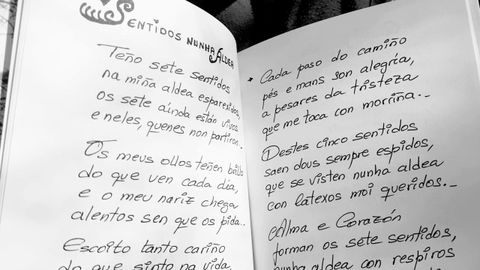 Sentidos nunha Aldea
Teño sete sentidos
na miña aldea esparexidos,
os sete aínda están vivos
e neles, quenes non partiron.
Os meus ollos teñen
do que ven cada día,
e o meu nariz chega
alentos sen que os pida..
Escoito tanto cariño
do que sinto na vida,
* Cada paso do camiño
pés e mans son alegría,
a pesares da tristeza
que me toca con morriña._
Destes cinco sentidos
saen dous sempre espidos,
que se visten nunha aldea
con látexos moi queridos._
Alma e Corazón
forman os sete sentidos,
nunha aldea con respiros